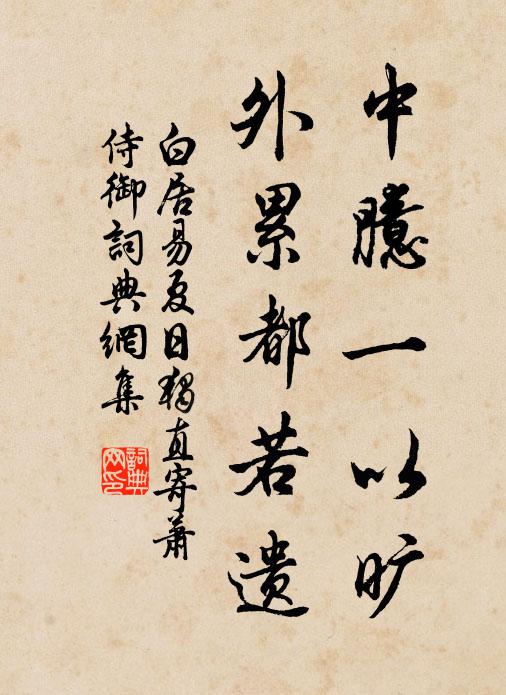 中臆一以旷
外累都若遗
白居易夏日獨直寄蕭
侍御詞典網集
詞典
网印